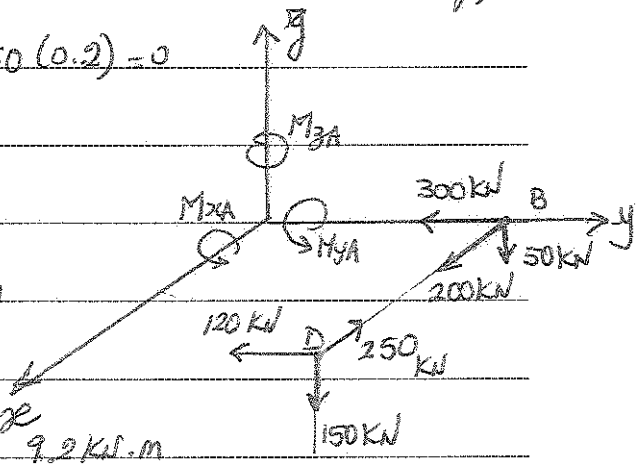 50 (0.2) = 0
z
MzA
MxA
MyA
300KN
B
y
50KN
200KN
120 KN
D
250
KN
x
150KN
9.2 KN.m